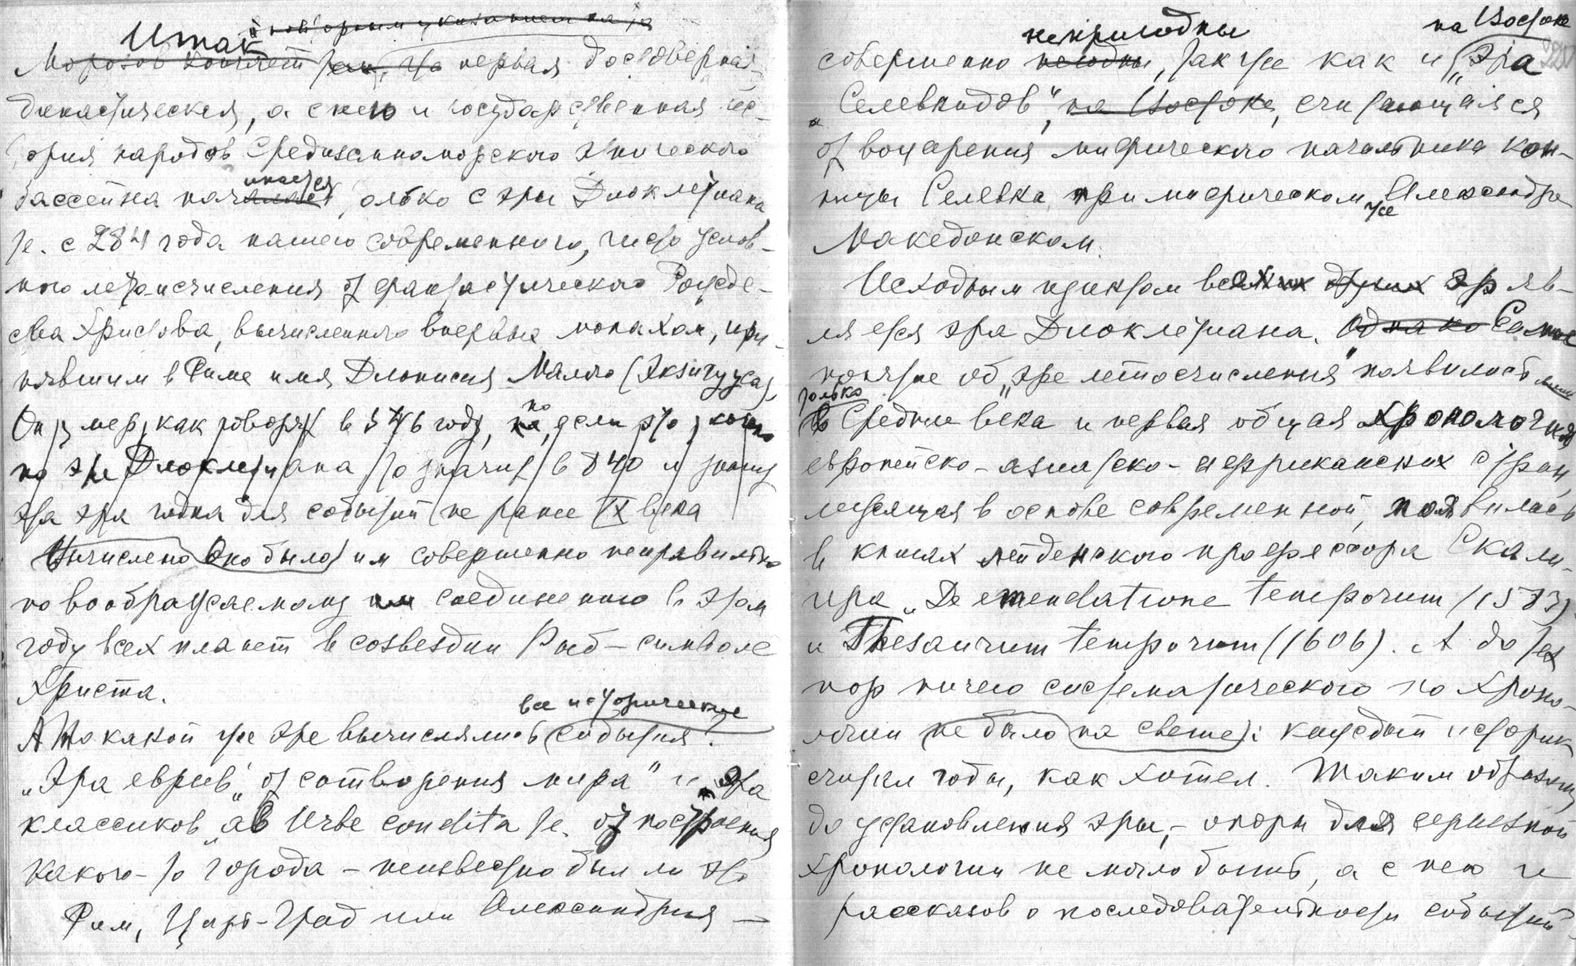 Итак
Морозов
первая достоверная
династическая, а с нею и государственная ис-
тория народов Средиземноморского этнического
инается
бассейна начался только с эры Диоклетиана
т.е. с 284 года нашего современного, чисто услов-
ного летоисчисления от фантастического Рожде-
ства Христова, вычисленного впервые монахом, при-
нявшим в Риме имя Дионисия Малого (Эксигууса)
Он умер, как говорят в 546 году, но если это
по эре Диоклетиана то значит в 840 и
эта эра годна для событий не ранее IX века
Вычислено Оно было им совершенно неправильно
по воображаемому им соединению в этом
году всех планет в созвездии Рыб – символе
Христа.
все исторические
А по какой же эре вычислялись события?
„Эра евреев" „от сотворения мира" и эра
классиков „ab Urbe condita т.е. от построения
какого-то города – неизвестно был ли это
Рим, Царь-Град или Александрия –
непригодны на Востоке
совершенно негодны, так же как и „Эра
Селевкидов", на Востоке, считающаяся
от воцарения мифического начальника кон-
ницы Селевка при мифическом же Александре
Македонском.
Исходным пунктом всех их других эр яв-
ляется эра Диоклетиана. Однако Самое
понятие об „эре летосчисления" появилось
только
в Средние века и первая общая
европейско-азиатско-африканских стран
лежащая в основе современной, появилась
в книгах лейденского профессора Скали-
гера „De emendatione temporum (1583)
и Thesaurum temporum (1606). А до тех
пор ничего систематического по хроно-
логии не было на свете: каждый историк
считал годы, как хотел. Таким образом,
до установления эры, – опоры для серьезной
хронологии не могло быть, а с нею и
рассказов о последовательности событий